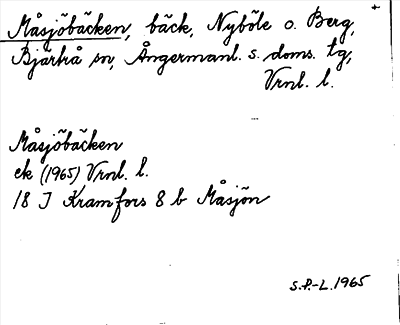 Måsjöbäcken, bäck, Nyböle o. Berg,
Bjärtrå sn, Ångermanl. s. doms. tg,
Vrnl. l.
Måsjöbäcken
ek (1965) Vrnl. l.
18 J Kramfors 8 b Måsjön
S.P.-L. 1965